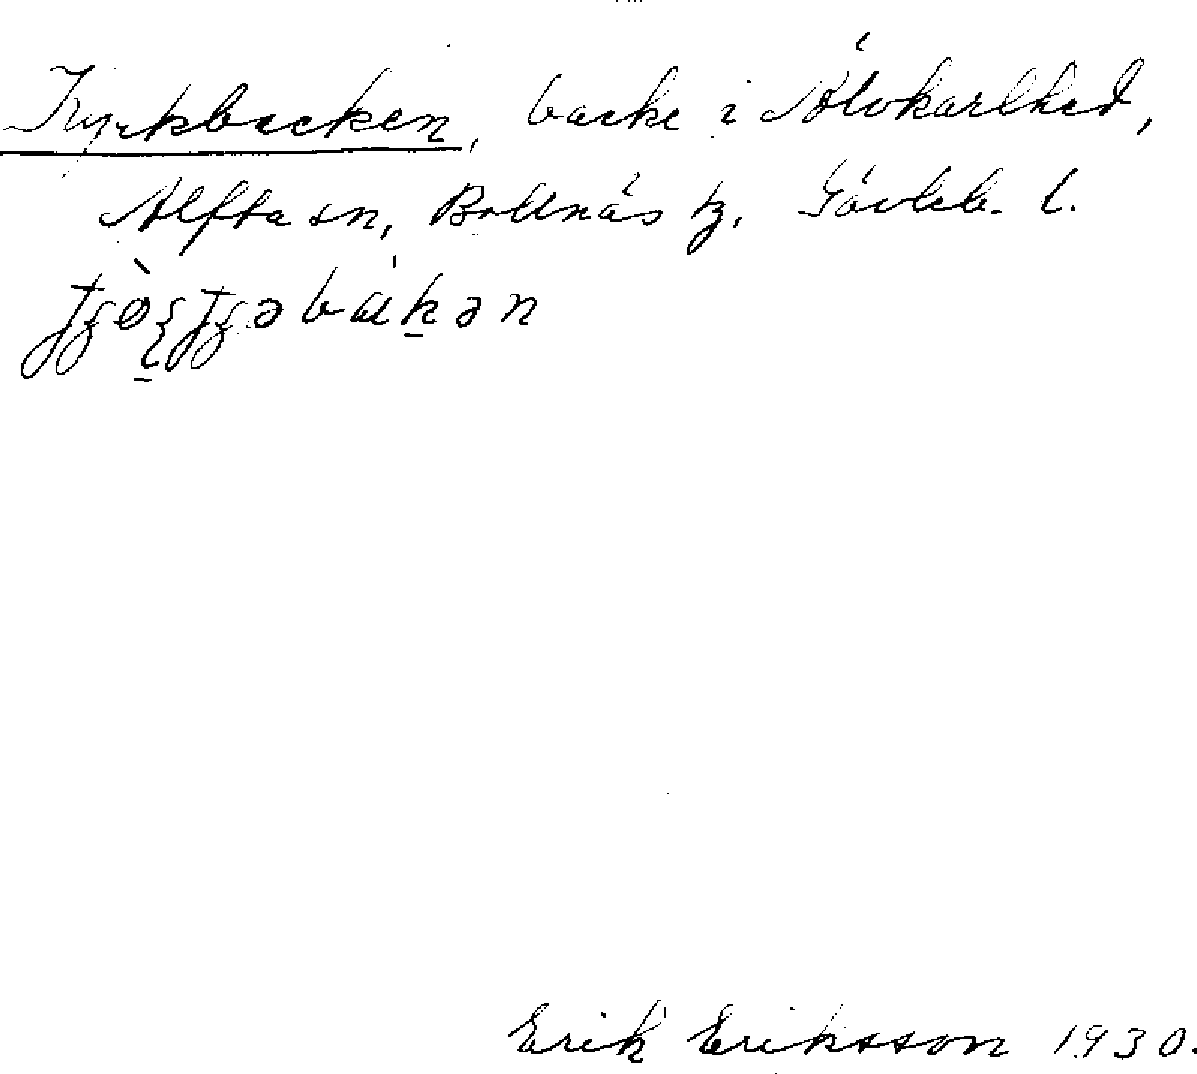 Kyrkbacken, backe i Älvkarlhed,
Alfta sn, Bollnäs tg, Gävleb. l.
Erik Eriksson 1930.